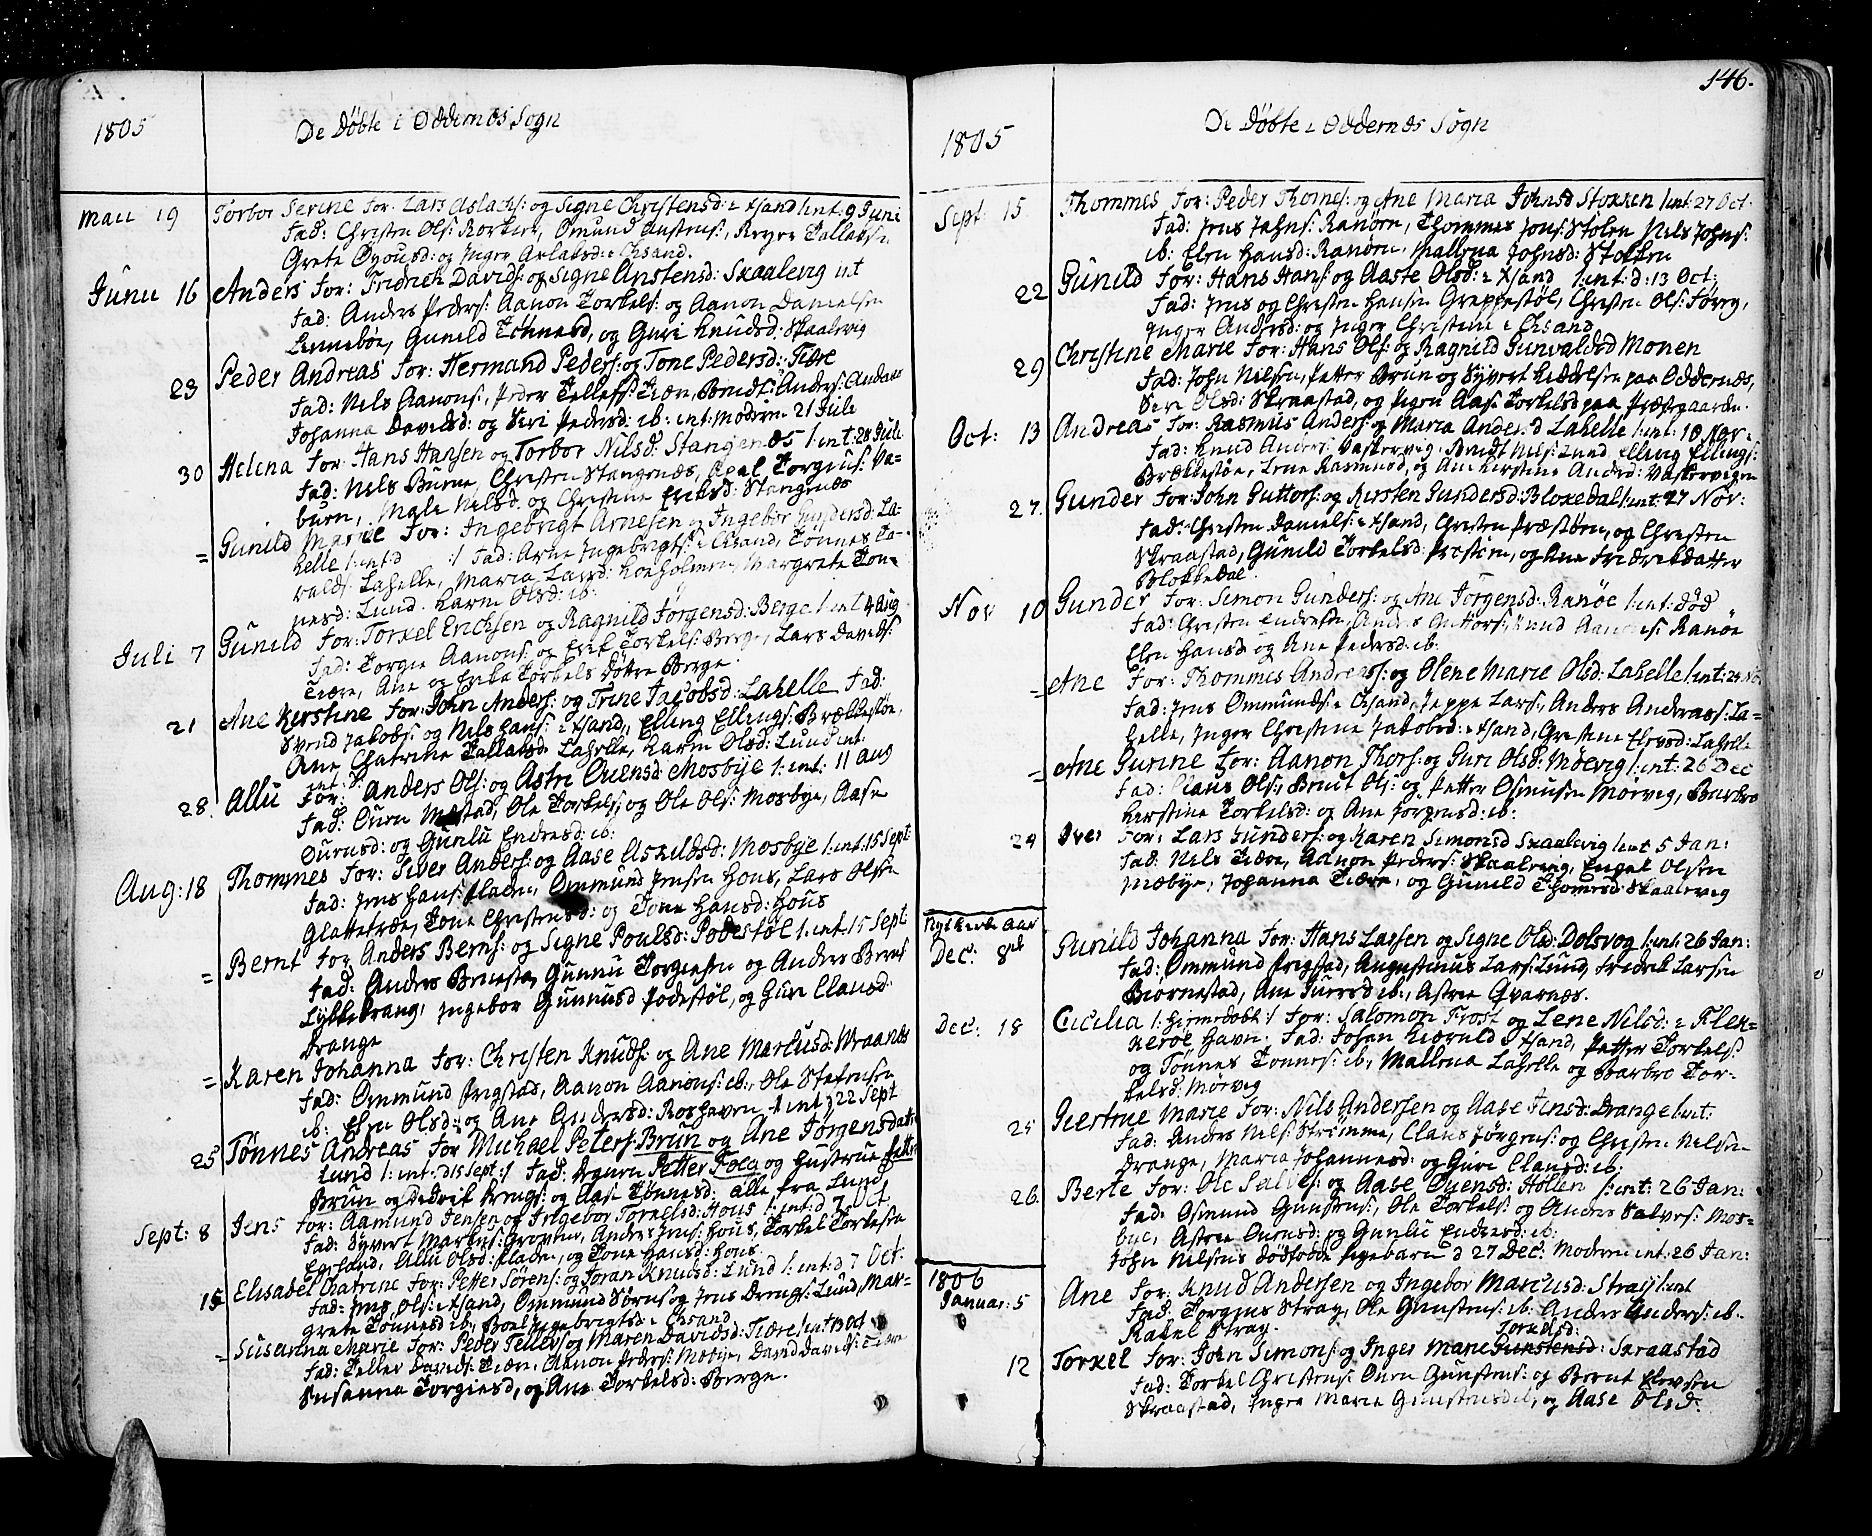 1805
De Døbte i Oddernes Sogn
Maii 19 Torbor Serine For: Lars Aslachs: og Signe Christensd: i Xsand int: 9 Junii
Fad: Christen Ols: Omund Anstens:, Reyer Tallaksn
Grete og Inger Aslaksd: i Chsand.
Junii 16 Anders For: Fridrich Davids: og Signe Anstensd: Skaalevig int
Fad: Anders Peders: Aanon Torkels: og Aanon Danielsen
Lennebøe, Gunild Tønnesd, og Guri Knudsd: Skaalevig
23 Peder Andreas For: Hermand Peders: og Tone Pedersd: Tiære
Fad: Nels Aanons:, Peder Tellefs: Tiære, Berndt Anders: Andaas
Johanna Davidsd: og Siri Pedersd: ib: int: Moderen 21 Julii
30 Helena For: Hans Hansen og Torbor Nilsd: Stangenes /: int: 28 Julii
Fad: Nels Buene, Christen Stangenæs, Torgius: Va=
buen, Male Nelsd. og Christine Eriksd: Stangenæs
= Gunild Marie For: Ingebrigt Arnesen og Ingebor Gundersd: La=
helle /: int: d :/ Fad: Arne Ingebrigts: i Chsand, Tønnes To=
valds: Lahelle, Maria Larsd: Koxholmen, Margrete Tøn=
nesd: Lund. Karen Olsd: ib:
Juli 7 Gunild For: Torkel Erichsen og Ragnild Jørgensd: Berge /: int 4 Aug
Fad: Torgie Aanons: og Erik Torkels: Berge, Lars Davids:
Tiære, Ane og Torkels Døtre Berge.
21 Ane Kirstine For: John Anders: og Trine Jacobsd: Lahelle Fad:
Svend Jakobs: og Nils Hans: i Xsand, Elling Ellings: Brækkestøe,
Ane Chatrine Tallaksd: Lahelle, Karen Olsd: Lund int:
28. Allu For: Anders Ols: og Astri Ouensd: Mosbye /: int: 11 Aug
Fad: Ouen Ole Torkels: og Ole Ols: Mosbye, Aase
Ouensd: og Gunlu Endresd: ib:
Aug: 18 Thommes For: Siver Anders: og Aase Askildsd: Mosbye /: int: 15 Sept:
Fad: Jens Hans: Fladen, Ommund Jensen Hons, Lars Olsen
Glattetræ, Tone Christensd: og Tone Hansd: Hous
= Bernt For Anders Berns: og Signe Poulsd: Podestøl /: int. 15 Sept:
Fad: Anders Gunnu Torgiesen og Anders Bernt
Lykkedrang, Ingebor Gunnusd Podestøl, og Guri Clausd:
Drange
= Karen Johanna For: Christen Knuds: og Ane Marcusd: Vraanes
Fad: Ommund Prigstad, Aanon Aanons: ib:, Ole Stefensen
ib: Elen Olsd: og Ane Andersd: Roshaven /: int d 22 Sept
25 Tønnes Andreas For Michael Peters: Brun og Ane Jørgensdatt:
Lund /: int: d 15 Sept :/ Fad: Petter Foca og Hustrue
Brun og Drengs: og Aase Tønnesd: alle fra Lund
Sept: 8 Jens For: Aamund Jensen og Ingebor Torkelsd: Hous /: int: d 7 Oct
Fad: Syvert Markus: Groven, Anders Jens: Hous, Torkel Torkelsen
Egeland, Allu Olsd: Fladen, og Tone Hansd: Hons.
15 Elisabet Chatrine For: Petter Sørens: og Joran Knudsd: Lund /: int: d 7 Oct:
Fad: Jens Ols: i Xsand, Ommund Sørns: og Jens Drengs: Lund, Mar=
grete Tønnesd ib:, Boel Ingebrigtsd i Chsand
= Susanna Marie For: Peder Tellevs: og Maren Davidsd: Tiære /: int: 13 Oct
Fad: Tellev Davids: Tiære, Aanon Peders: Møbye, David Davids: Tiære
Susanna Torgiesd, og Ane Torkelsd: Berge.
146.
1805
De Døbte i Oddernes Sogn
Sept: 15 Thommes For: Peder Thomes: og Ane Maria Johnsd Stokken /: int: 27 Oct:
Fad: Jens Jahns: Ranøen, Thommes Jons: Stolen Nils Johns:
ib: Elen Hansd: Ranøen, Mallena Johnsd: Stokken
22 Gunild For: Hans Hans: og Aaste Olsd: i Xsand /: int: d: 13 Oct:
Fad: Jens og Christen Hansen Greppestøl, Christen Ols: Førev,
Inger Andersd: og Inger Christine i Chsand
29 Christine Marie For: Hans Ols: og Ragnild Gunvaldsd Monen
Fad: John Nilsen, Petter Brun og Syvert Kiddelsen paa Oddernæs,
Siri Olsd: Skraastad, og Pigen Aase Torkelsd paa Præstgaarden.
Oct: 13 Andreas For: Rasmus Anders: og Maria Andersd Lahelle /: int: 10 Nov:
Fad: Knud Anders: Vaskervig, Berndt Nils: Lund, Elling Ellings:
Brækkestøe, Lene Rasmusd, og Ane Kirstine Andersd: Vaskervigen
27. Gunder For: John Guttors: og Kirsten Gundersd: Bloxedal /: int: 27 Nov:
Fad: Christen Daniels: i Xsand, Christen Præstøen, og Christen
Skraastad, Gunild Torkelsd: og Ane Fredriksdatter
Blokkedal.
Nov 10 Gunder For: Simon Gunders: og Ane Jørgensd: Ranøe /: int: død
Fad: Christen Endresen, Anders Guttors:, Knud Aanons: Ranøe
Elen Hansd og Ane Pedersd: ib:
= Ane For: Thommes Andreass: og Olene Marie Olsd: Lahelle /: int: 24 Nov
Fad: Jens Ommunds: i Chsand, Jeppe Lars:, Anders Andreass: La=
helle, Inger Christine Jakobsd: i Xsand, Christine Elevsd: Lahelle
= Ane Gurine For: Aanon Thors: og Guri Olsd: Møevig /: int: 26 Dec
Fad: Claus Ols:, Brnut Ols: og Petter Osmunsen Mørvig, Barbro
Kirstine Torkelsd: og Ane Jorgensd: ib:
24 Iver For: Lars Gunders: og Karen Simonsd Skaalevig /: int 5 Jan:
Fad: Nils Tiære, Aanon Peders: Skaalevig, Engel Olsen
Mæbye, Johanna Tiære, og Gunild Thomesd: Skaalevig
Nyt Kirke Aar
Dec: 8de Gunild Johanna For: Hans Larsen og Signe Olsd: Dolsvog /: int: 26 Jan:
Fad: Ommund Prigstad, Augustinus Lars: Lund, Fredrik Larsen
Biørnestad, Ane Iuersd ib:, Astrie Qvarnæs.
Dec: 18 Cicilia /: hiemedøbt :/ For: Salomon Frost og Lene Nilsd: i Flek=
kerøe Havn. Fad: Johan Kiørulf i Xsand, Petter Torkels:
og Tønnes Tønnes: ib:, Mallena Lahelle og Barbro Tor=
kelsd: Mørvig
25 Giertrue Marie For: Nils Andersen og Aase Jensd: Drange /: int:
Fad: Anders Nels: Strømme, Claus Jørgens: og Christen Nelsen
Drange, Maria Johannesd: og Guri Clausd: ib:
26. Berte For: Ole Salves: og Aase Øyensd: Holen /: int: 26 Jan:
Fad: Osmund Gunstens:, Ole Torkels: og Anders Salves: Mos=
bye, Astrie Ouensd: og Gunlu Endresd: ib:
John Nilsens dødfødde Pigebarn d 27 Dec: Moderen int: 26 Jan:
1806
Januar: 5 Ane For: Knud Andersen og Ingebor Marcusd: Stray /: int
Fad: Torgius Stray, Ole Gunstens: ib: Anders Anders: ib.
Rakel Stray.
Torkelsd:
12 Torkel For: John Simons: og Inger Marie Gunstensd: Skraastad
Fad: Torkel Christens: Ouen Gunstens: og Bernt Elevsen
Skraastad, Inger Maria Gunstensd ib, og Aase Olsd: